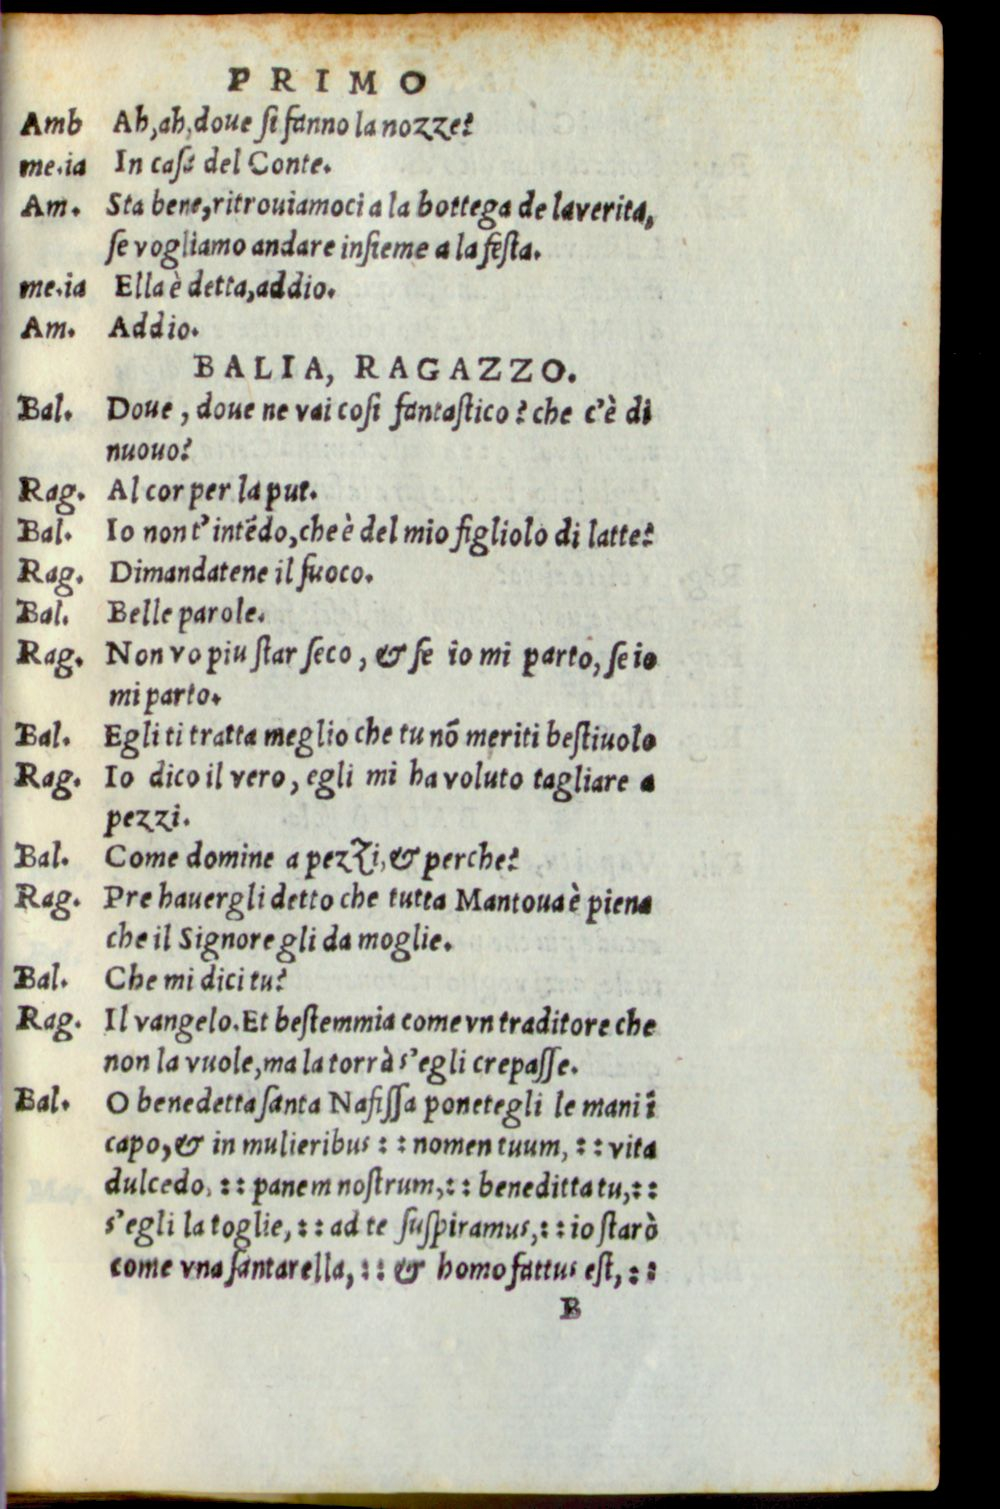 PRIMO
Amb Ah, ah, doue si fanno la nozze?
me.ia In casa del Conte.
Am. Sta bene, ritrouiamoci a la bottega de la verita,
se vogliamo andare insieme a la festa.
me.ia Ella è detta, addio.
Am. Addio.
BALIA, RAGAZZO.
Bal. Doue, doue ne vai cosi fantastico? che c'è di
nuouo?
Rag. Al cor per la put.
Bal. Io non t'intẽdo, che è del mio figliolo di latte?
Rag. Dimandatene il fuoco.
Bal. Belle parole.
Rag. Non vo piu star seco, & se io mi parto, se io
mi parto.
Bal. Egli ti tratta meglio che tu nõ meriti bestiuolo
Rag. Io dico il vero, egli mi ha voluto tagliare a
pezzi.
Bal. Come domine a pezzi, & perche?
Rag. Pre hauergli detto che tutta Mantoua è piena
che il Signore gli da moglie.
Bal. Che mi dici tu?
Rag. Il vangelo. Et bestemmia come vn traditore che
non la vuole, ma la torrà s'egli crepasse.
Bal. O benedetta santa Nafissa ponetegli le mani ĩ
capo, & in mulieribus :: nomen tuum, :: vita
dulcedo, :: panem nostrum, :: beneditta tu, ::
s'egli la toglie, :: ad te suspiramus, :: io starò
come vna santarella, :: & homo fattus est, ::
B